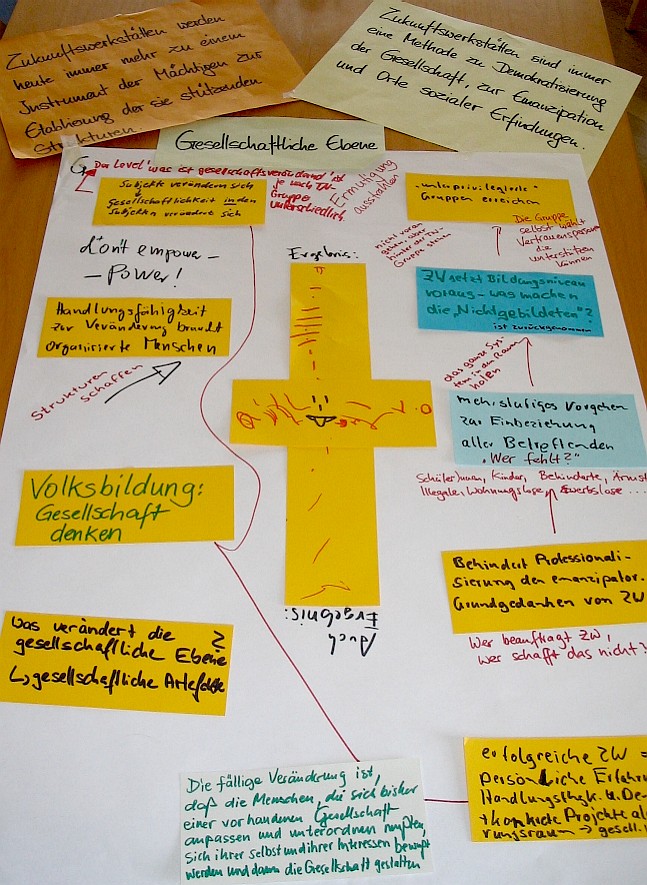 Zukunftswerkstätten werden
heute immer mehr zu einem
Instrument der Mächtigen zur
Etablierung der sie stützenden
Strukturen
Zukunftswerkstätten sind immer
eine Methode zu Demokratisierung
der Gesellschaft, zur Emanzipation
und Orte sozialer Erfindungen.
Gesellschaftliche Ebene
Das Level 'was ist gesellschaftsverändernd' ist
je nach TN-
Gruppe
unterschiedlich.
Ermutigung
ausstrahlen
Subjekte verändern sich
Gesellschaftlichkeit in den
Subjekten verändert sich
don't empower -
- Power!
Handlungsfähigkeit
zur Veränderung braucht
organisierte Menschen
Strukturen
schaffen
Volksbildung:
Gesellschaft
denken
Was verändert die ?
gesellschaftliche Ebene
↳ gesellschaftliche Artefakte
Ergebnis:
Auch
Ergebnis:
nicht voran
gehen, aber
hinter der TN-
Gruppe stehen
"unterprivilegierte"
Gruppen erreichen
Die Gruppe
selbst wählt
Vertrauenspersonen
die
unterstützen
können
ZW setzt Bildungsniveau
voraus - was machen
die "Nichtgebildeten"?
ist zurückgenommen
das ganze Sys-
tem in den Raum
holen
mehrstufiges Vorgehen
zur Einbeziehung
aller Betroffenden
"Wer fehlt?"
Schüler/innen, Kinder, Behinderte, Ärmste
Illegale, Wohnungslose, Erwerbslose ...
Behindert Professionali-
sierung den emanzipator.
Grundgedanken von ZW
Wer beauftragt ZW,
wer schafft das nicht?
erfolgreiche ZW =
persönliche Erfahru
Handlungsfhgk. u. De-
+ konkrete Projekte al
rungsraum → gesell.
Die fällige Veränderung ist,
daß die Menschen, die sich bisher
einer vorhandenen Gesellschaft
anpassen und unterordnen mußten,
sich ihrer selbst und ihrer Interessen bewußt
werden und dann die Gesellschaft gestalten